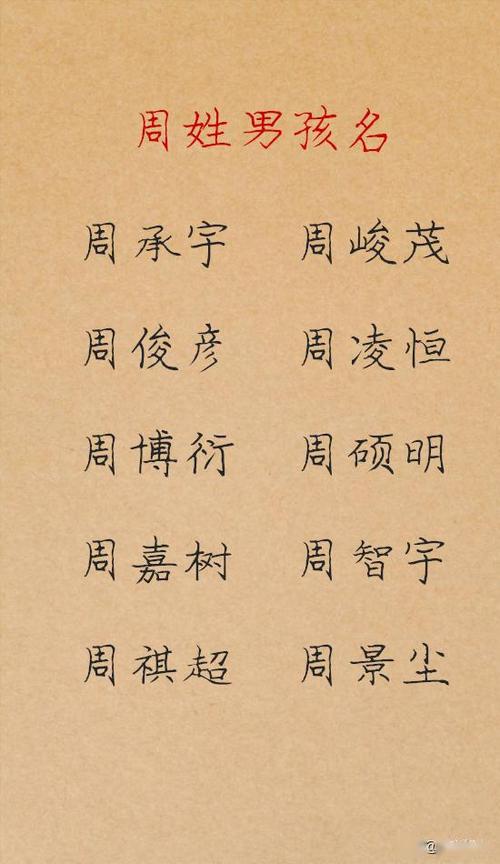 周姓男孩名
周承宇 周峻茂
周俊彦 周凌恒
周博衍 周硕明
周嘉树 周智宇
周祺超 周景尘